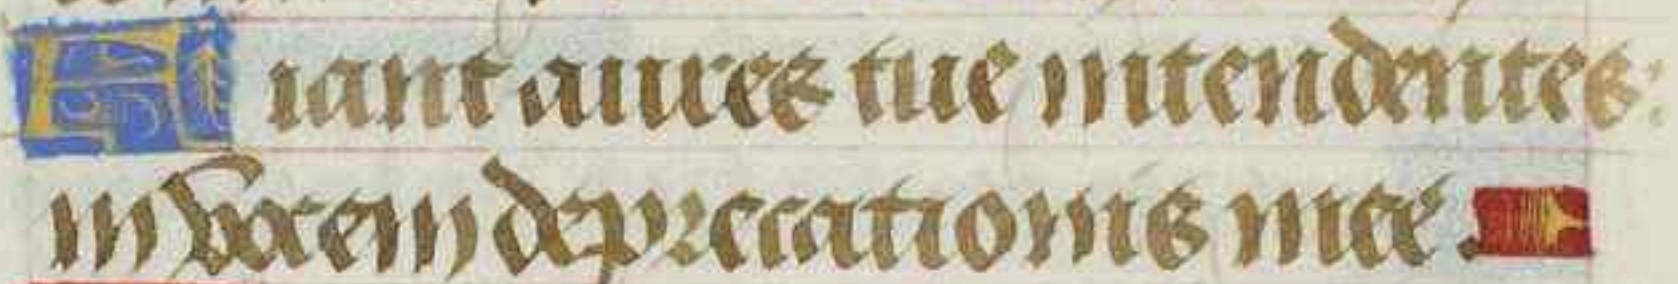 Fiant aures tue intendentes:
in vocem deprecationis mee.